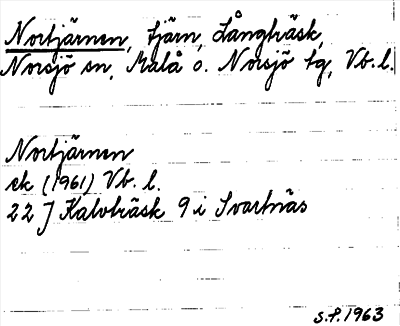 Nortjärnen, tjärn, Långträsk,
Norsjö sn, Malå o. Norsjö tg, Vb. l.
Nortjärnen
ek (1961) Vb. l.
22 J Kalvträsk 9 i Svartnäs
S.P. 1963